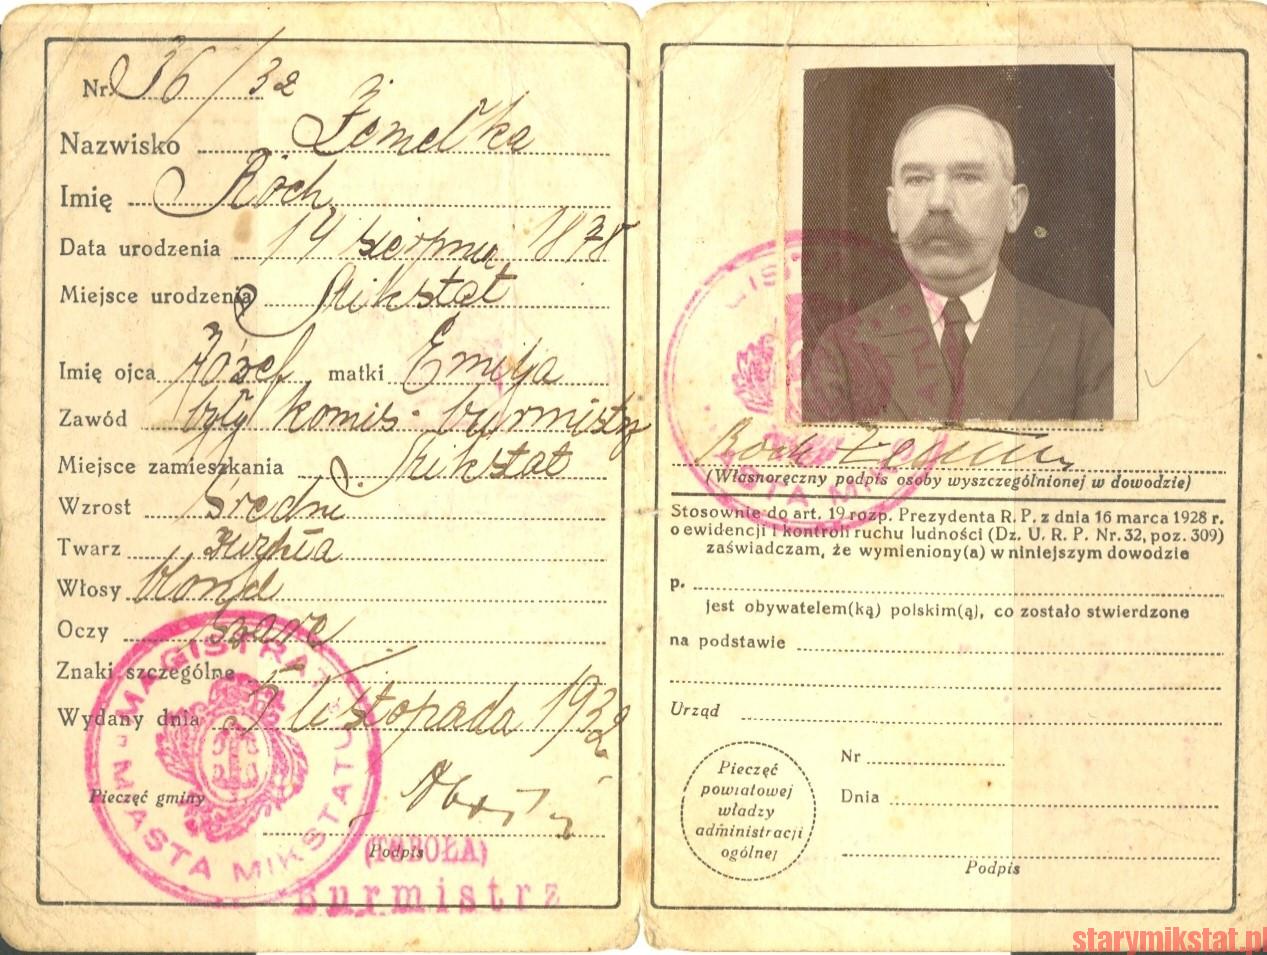 Nr 36/32
Nazwisko Żemełka
Imię Roch
Data urodzenia 14 sierpnia 1878
Miejsce urodzenia Mikstat
Imię ojca Józef matki Emilja
Zawód były komis. burmistrz
Miejsce zamieszkania Mikstat
Wzrost średni
Twarz
Włosy blond
Oczy szare
Znaki szczególne
Wydany dnia 5 listopada 1932
MAGISTRAT
MIASTA MIKSTATU
Pieczęć gminy
Podpis
Burmistrz
MAGISTRAT
MIASTA MIKSTATU
Roch
(Własnoręczny podpis osoby wyszczególnionej w dowodzie)
Stosownie do art. 19 rozp. Prezydenta R. P. z dnia 16 marca 1928 r.
o ewidencji i kontroli ruchu ludności (Dz. U. R. P. Nr. 32, poz. 309)
zaświadczam, że wymieniony(a) w niniejszym dowodzie
p.
jest obywatelem(ką) polskim(ą), co zostało stwierdzone
na podstawie
Urząd
Pieczęć
powiatowej
władzy
administracji
ogólnej
Nr
Dnia
Podpis
starymikstat.pl